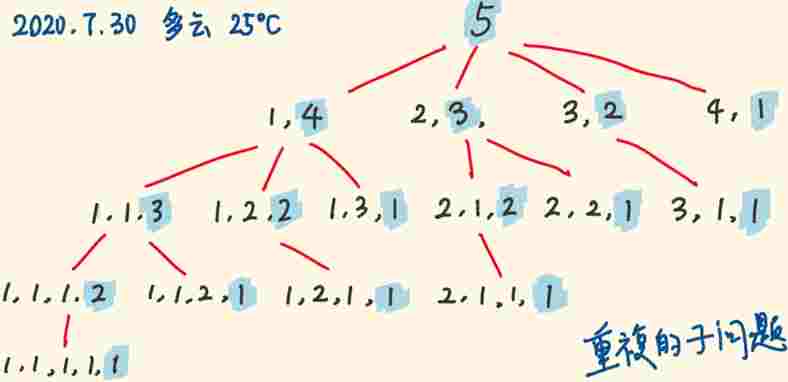 2020.7.30 多云 25℃
5
1,4 2,3, 3,2 4,1
1.1.3 1,2.2 1,3,1 2.1,2 2,2,1 3,1,1
1,1,1.2 1,1,2,1 1,2,1,1 2,1,1,1
1,1,1,1,1
重複的子问题